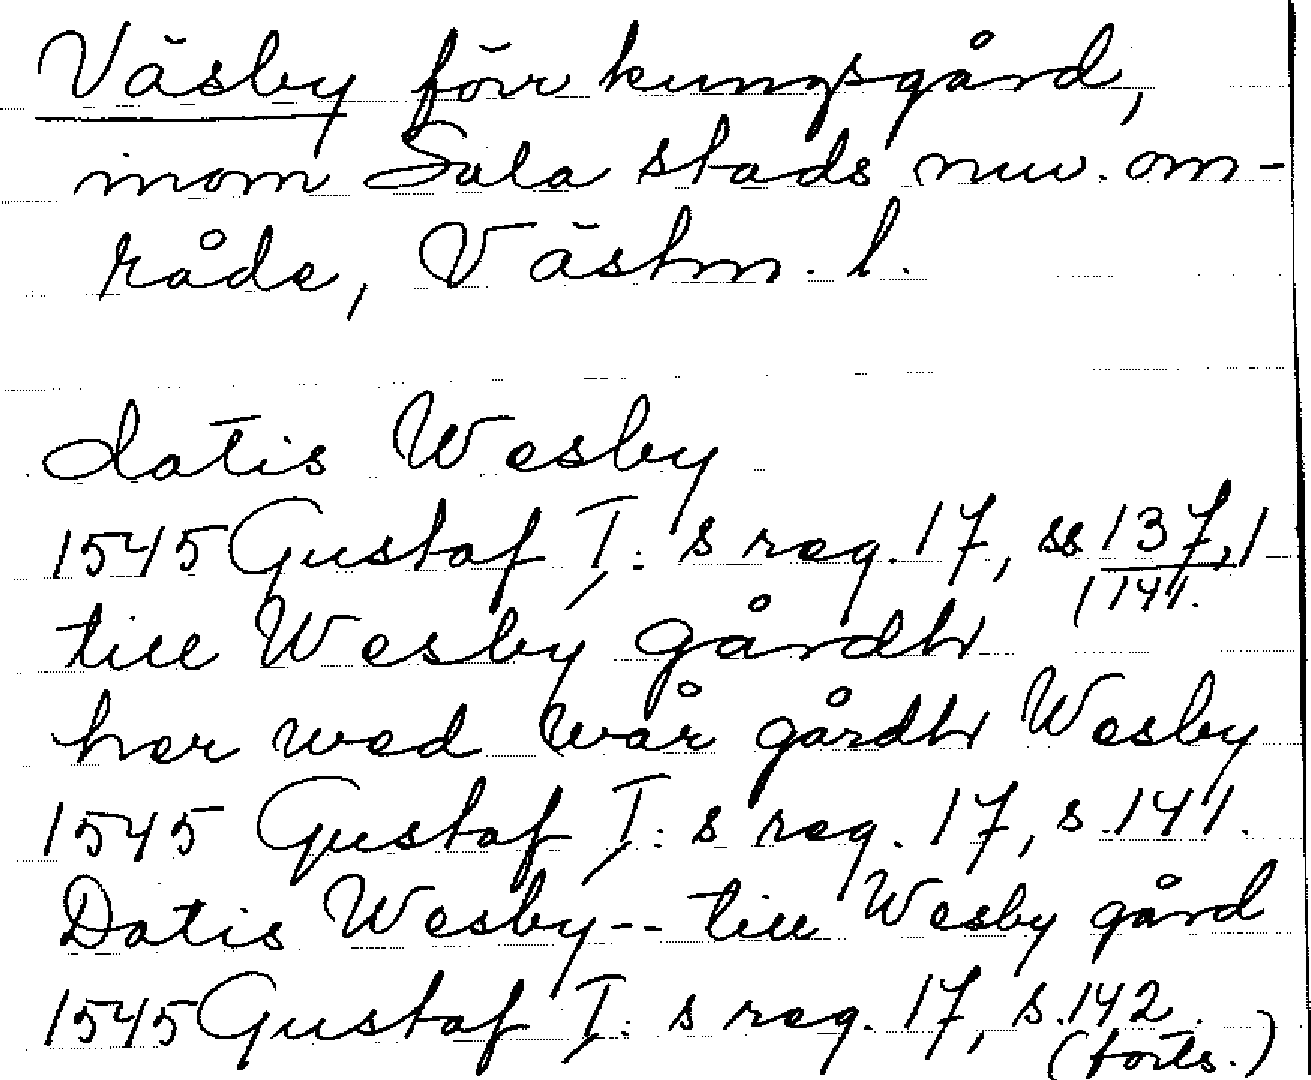 Väsby förr kungsgård,
inom Sala stads nuv. om-
råde, Västm. l.
datis Wesby
1545 Gustaf I:s reg. 17, ss 137, 1
(141.
till Wesby gårdh
her wed wår gårdh Wesby
1545 Gustaf I:s reg. 17, s. 141.
Datis Wesby -- till Wesby gård
1545 Gustaf I:s reg. 17, s. 142.
(forts.)